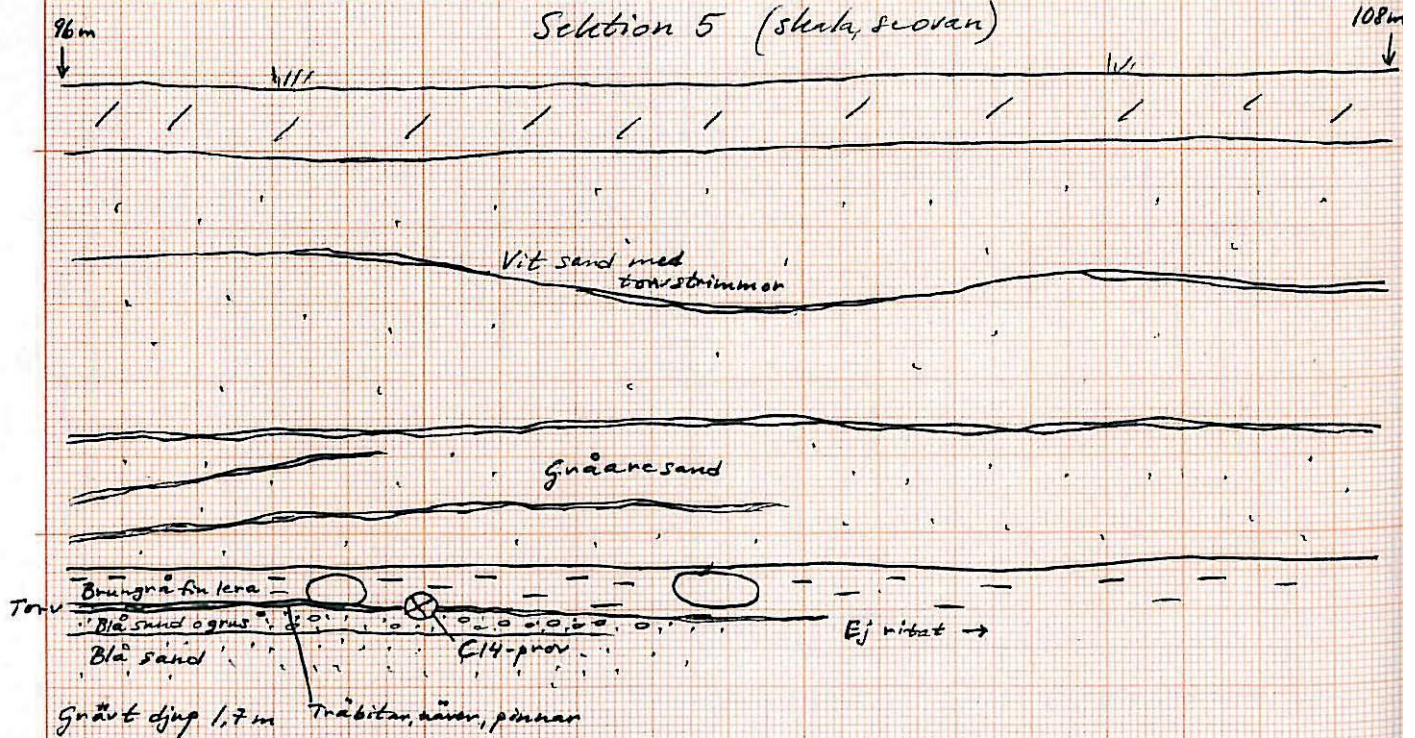 Sektion 5 (skala, se ovan)
96m
108m
Vit sand med
torvstrimmor
Gråare sand
Brungrå fin lera
Torv
Blå sand o grus
Ej ritat →
Blå sand
C14-prov
Grävt djup 1,7 m
Träbitar, näver, pinnar